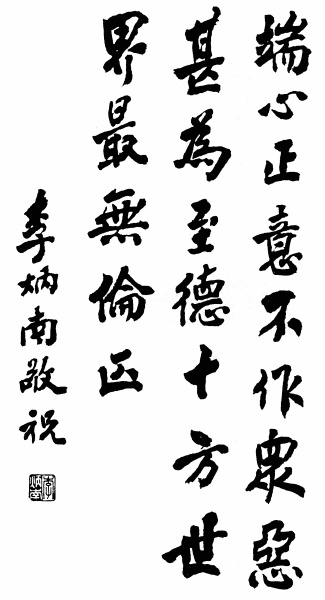 端心正意不作眾惡
甚為至德十方世
界最無倫匹
李炳南敬祝
李炳南